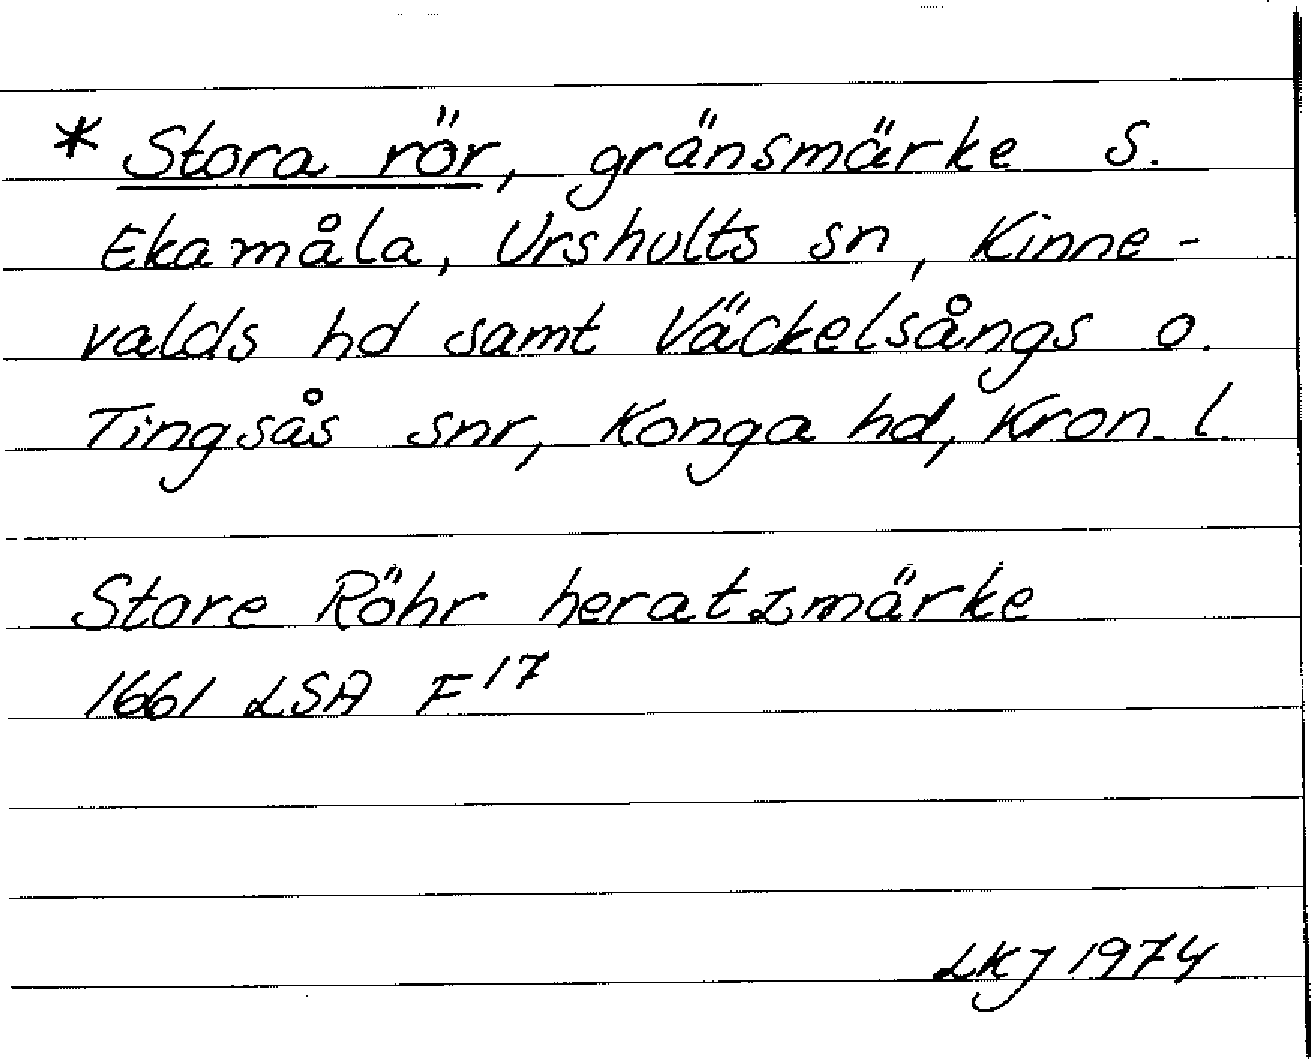 * Stora rör, gränsmärke S.
Ekamåla, Urshults sn, Kinne-
valds hd samt Väckelsångs o.
Tingsås snr, Konga hd, Kron. l.
Store Röhr heratzmärke
1661 LSA F 17
LKJ 1974